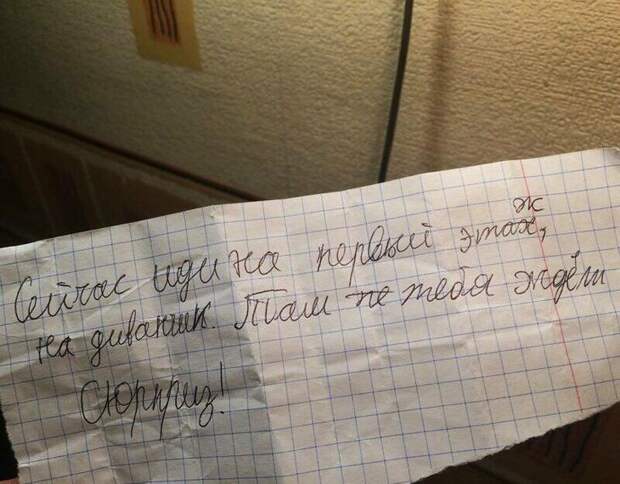 ж
Сейчас иди на первый этах,
на диваник. Там не тебя ждёт
Сюрприз!